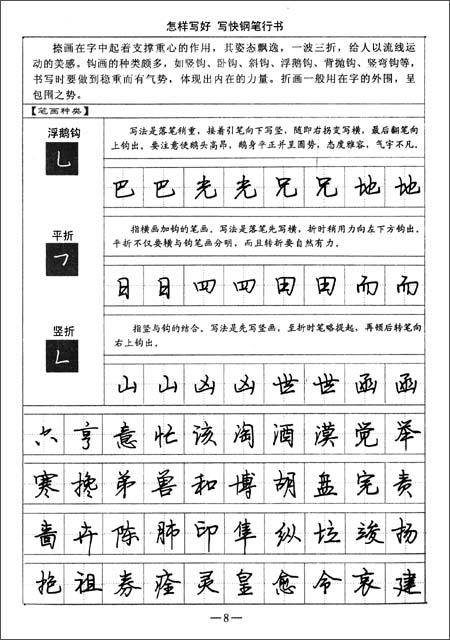 怎样写好 写快钢笔行书
捺画在字中起着支撑重心的作用，其姿态飘逸，一波三折，给人以流线运
动的美感。钩画的种类颇多，如竖钩、卧钩、斜钩、浮鹅钩、背抛钩、竖弯钩等，
书写时要做到稳重而有气势，体现出内在的力量。折画一般用在字的外围，呈
包围之势。
【笔画种类】
浮鹅钩
乚
写法是落笔稍重，接着引笔向下写竖，随即右拐变写横，最后翻笔向
上钩出。要注意使鹅头高昂，鹅身平正并呈圆势，态度雅容，气宇不凡。
巴 巴 光 光 兄 兄 地 地
平折
㇕
指横画加钩的笔画。写法是落笔先写横，折时稍用力向左下方钩出。
平折不仅要横与钩笔画分明，而且转折要自然有力。
日 日 四 四 田 田 而 而
竖折
𠃊
指竖与钩的结合。写法是先写竖画，至折时笔略提起，再顿后转笔向
右上钩出。
山 山 凶 凶 世 世 函 函
六 亨 意 忙 该 淘 酒 漠 觉 举
寒 搀 弟 兽 和 博 胡 盘 完 责
啬 卉 陈 肺 印 隼 纵 垃 竣 扬
抱 祖 券 痊 灵 皇 愈 令 哀 建
—8—